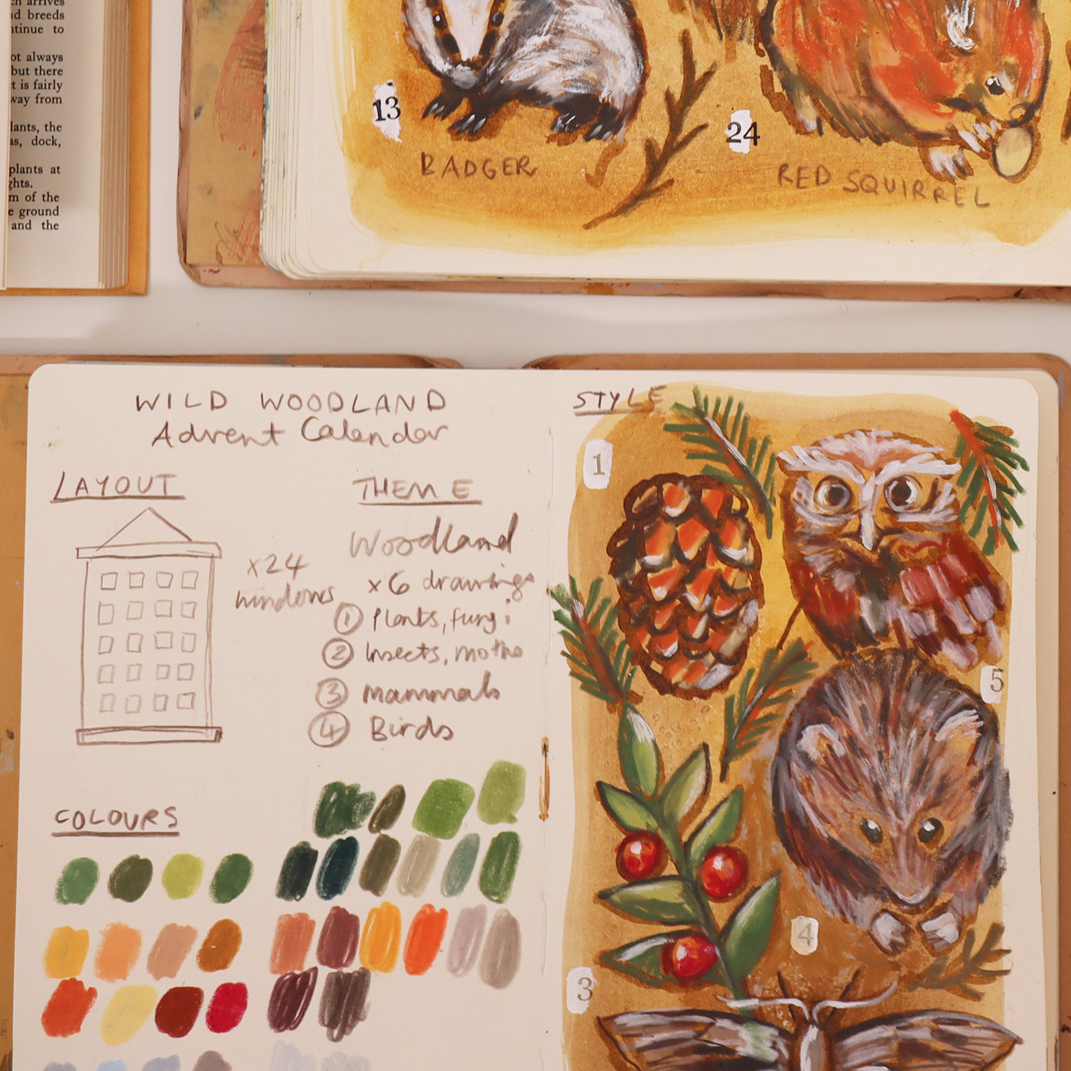 arrives
breeds
tinue to
ot always
but there
t is fairly
way from
lants, the
as, dock,
plants at
ghts.
m of the
e ground
and the
13
BADGER
24
RED SQUIRREL
WILD WOODLAND
Advent Calendar
LAYOUT
x24
windows
THEME
Woodland
x6 drawings
① Plants, fungi
② Insects, moths
③ mammals
④ Birds
COLOURS
STYLE
1
5
4
3